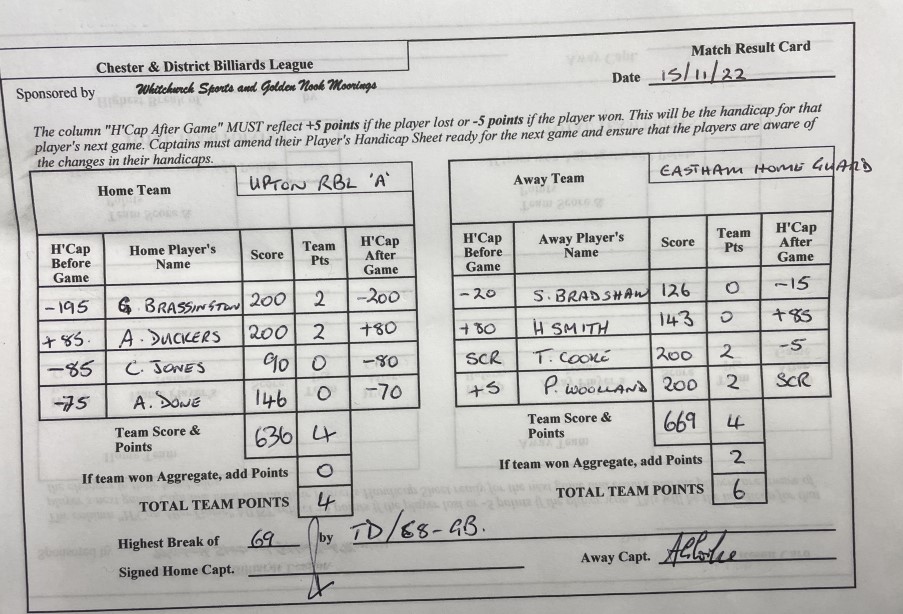 Chester & District Billiards League
Match Result Card
Sponsored by Whitchurch Sports and Golden Nook Moorings
Date 15/11/22
The column "H'Cap After Game" MUST reflect +5 points if the player lost or -5 points if the player won. This will be the handicap for that
player's next game. Captains must amend their Player's Handicap Sheet ready for the next game and ensure that the players are aware of
the changes in their handicaps.
Home Team UPTON RBL 'A'
H'Cap Before Game Home Player's Name Score Team Pts H'Cap After Game
-195 G. BRASSINGTON 200 2 -200
+85. A. DUCKERS 200 2 +80
-85 C. JONES 90 0 -80
-75 A. DONE 146 0 -70
Team Score & Points 636 4
If team won Aggregate, add Points 0
TOTAL TEAM POINTS 4
Away Team EASTHAM HOME GUARD
H'Cap Before Game Away Player's Name Score Team Pts H'Cap After Game
-20 S. BRADSHAW 126 0 -15
+80 H SMITH 143 0 +85
SCR T. COOKE 200 2 -5
+5 P. WOOLLAND 200 2 SCR
Team Score & Points 669 4
If team won Aggregate, add Points 2
TOTAL TEAM POINTS 6
Highest Break of 69 by TD/68-GB.
Signed Home Capt.
Away Capt.